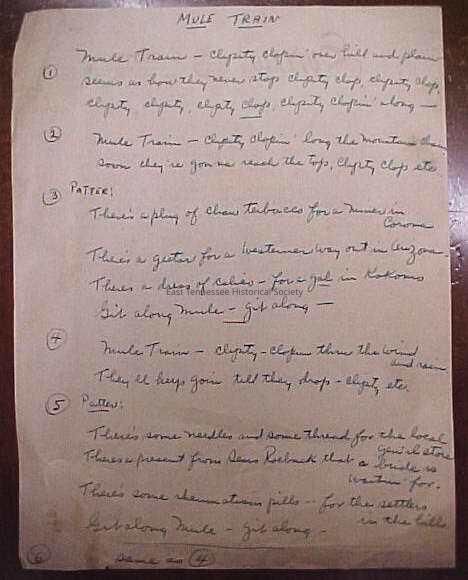 MULE TRAIN
① Mule Train - clipity clopin' over hill and plain
seems as how they never stop clipity clop, clipity clop,
clipity, clipity, clipity clop, clipity clopin' along -
② Mule Train - clipity clopin' 'long the mountain chain
soon they're gonna reach the top, clipity clop etc
③ PATTER:
There's a plug of chaw terbaccy for a Miner in
Corona
There's a geetar for a westerner way out in Arizona -
There's a dress of calico - for a gal in Kokomo
Git along Mule - git along -
East Tennessee Historical Society
④ Mule Train - clipity - clopin thru the wind
and rain
They'll keep goin till they drop - clipity etc.
⑤ Patter:
There's some needles and some thread for the local
gen'rl store
There's a present from Sears Roebuck that a bride is
waitin' for.
There's some rheumatism pills - for the settlers
in the hills
Git along Mule - git along -
⑥ same as ④